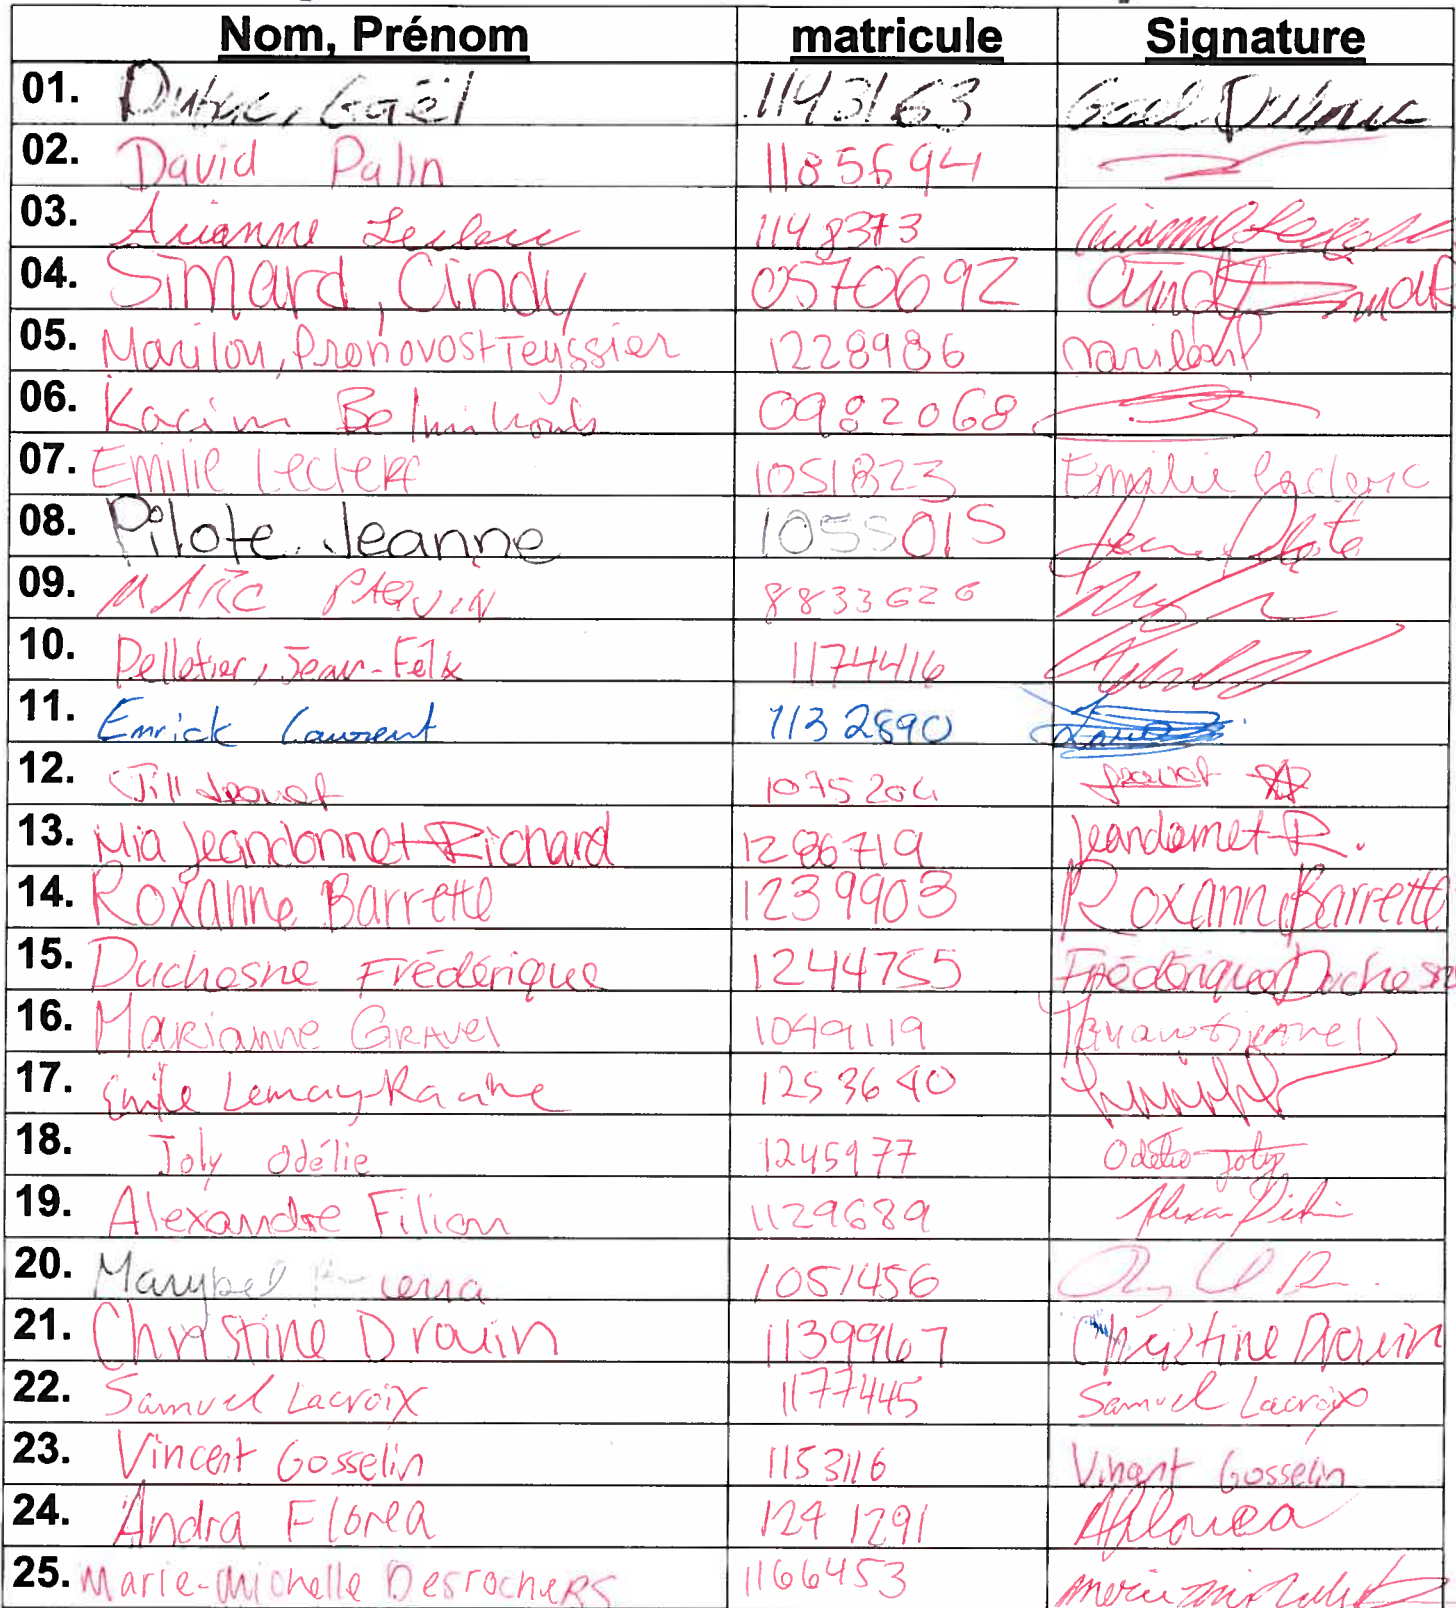 Nom, Prénom matricule Signature
01. Dubuc, Gaël 1143163 Gael Dubuc
02. David Palin 1185694
03. Arianne Leclerc 1148373 Arianne Leclerc
04. Simard, Cindy 0570692 Cindy Simard
05. Marilou, Pronovost Teyssier 1228986
06. Kacim 0982068
07. Emilie Leclerc 1051823 Emilie Leclerc
08. Pilote, Jeanne 1055015 Jeanne Pilote
09. MARC PAQUIN 8833626
10. Pelletier, Jean-Félix 1174416
11. Emrick Laurent 1132890
12. Jill 1075204
13. Mia Jeandonnet-Richard 1286719 Jeandonnet-R.
14. Roxanne Barrette 1239903 Roxanne Barrette
15. Duchesne Frédérique 1244755 Frédérique Duchesne
16. Marianne Gravel 1049119 Marianne Gravel
17. Émile Lemay-Racine 1253640
18. Joly Odélie 1245977 Odélie Joly
19. Alexandre Filion 1129689
20. Marybel 1051456
21. Christine Drouin 1139967 Christine Drouin
22. Samuel Lacroix 1177445 Samuel Lacroix
23. Vincent Gosselin 1153116 Vincent Gosselin
24. Andra Florea 1241291 AFlorea
25. Marie-Michelle Desrochers 1166453